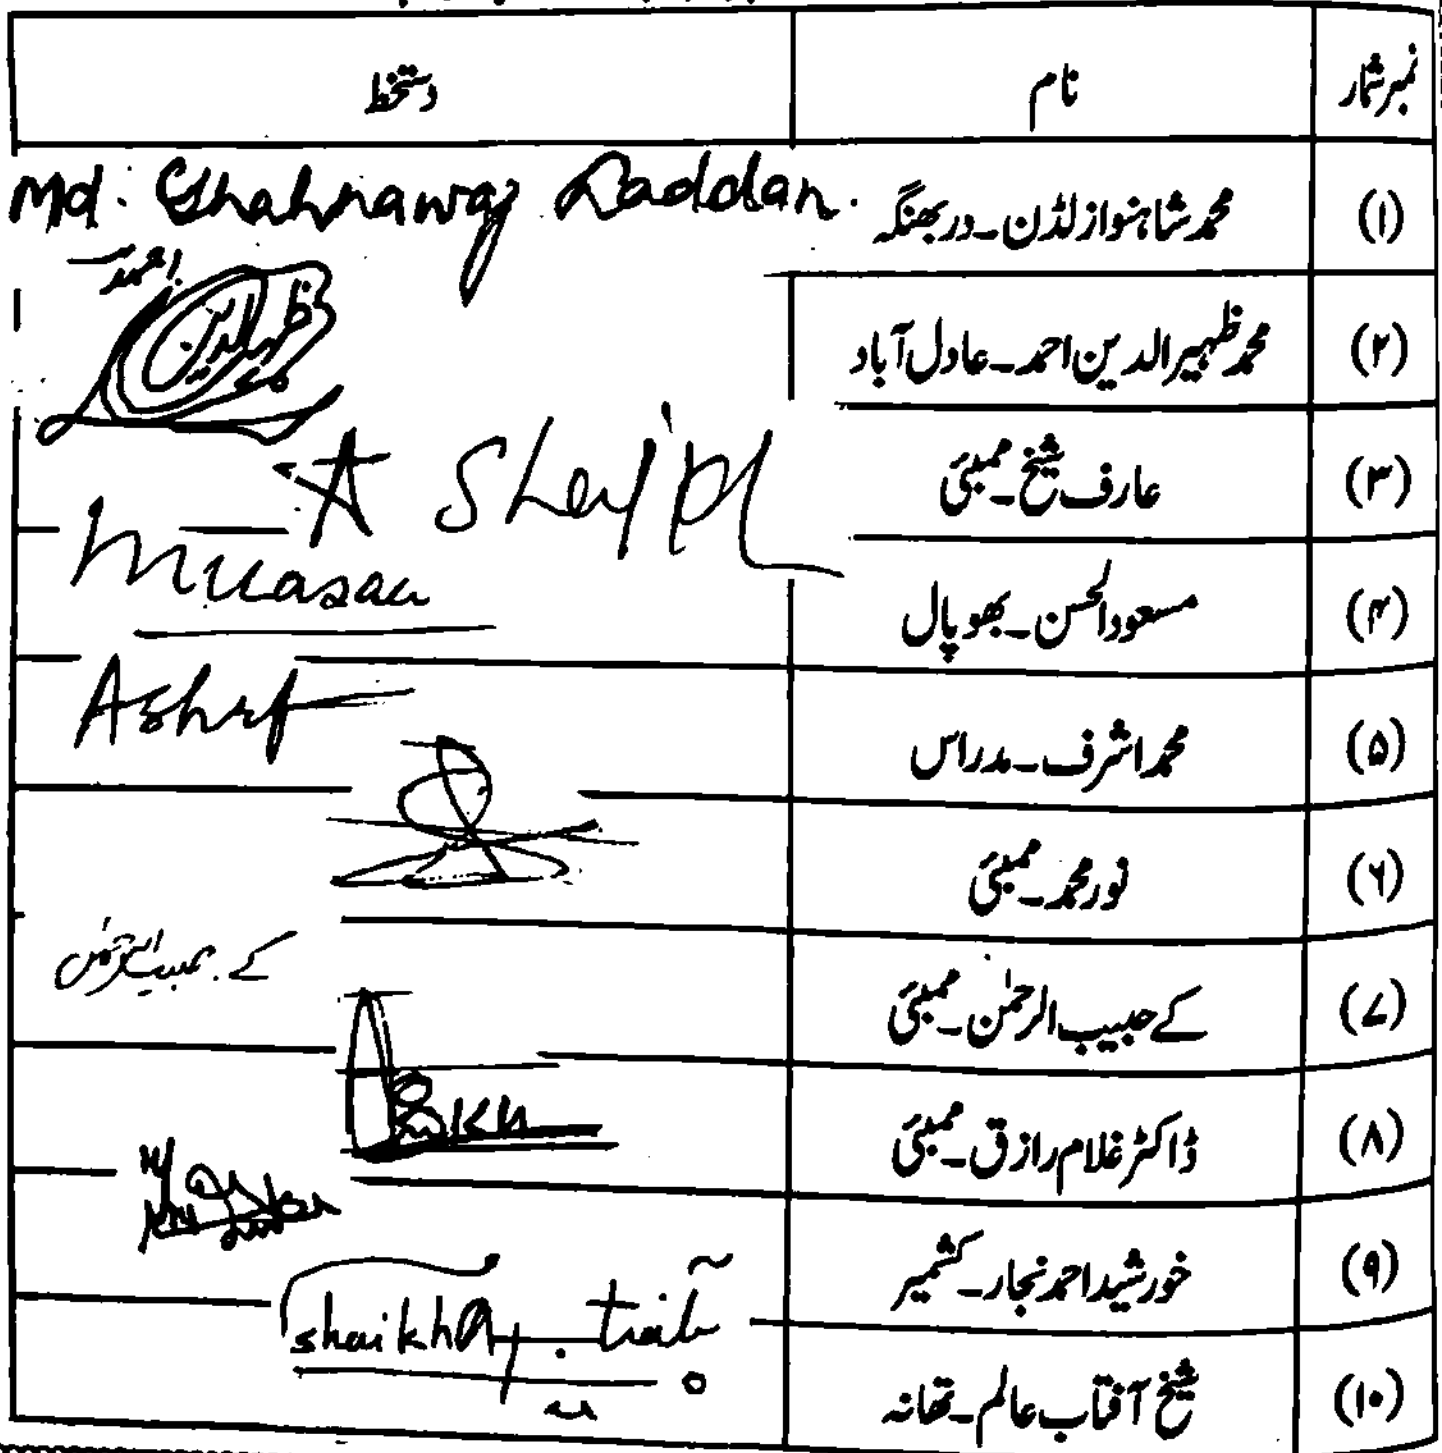 نمبر شمار نام دستخط
(۱) محمد شاہنواز لڈن۔دربھنگہ Md. Shahnawaz Laddan.
(۲) محمد ظہیر الدین احمد۔عادل آباد ظہیر الدین احمد
(۳) عارف شیخ۔ممبئی A Shaikh
(۴) مسعود الحسن۔بھوپال
(۵) محمد اشرف۔مدراس Ashrf
(۶) نور محمد۔ممبئی
(۷) کے حبیب الرحمٰن۔ممبئی کے۔حبیب الرحمٰن
(۸) ڈاکٹر غلام رازق۔ممبئی
(۹) خورشید احمد نجار۔کشمیر
(۱۰) شیخ آفتاب عالم۔تھانہ shaikh